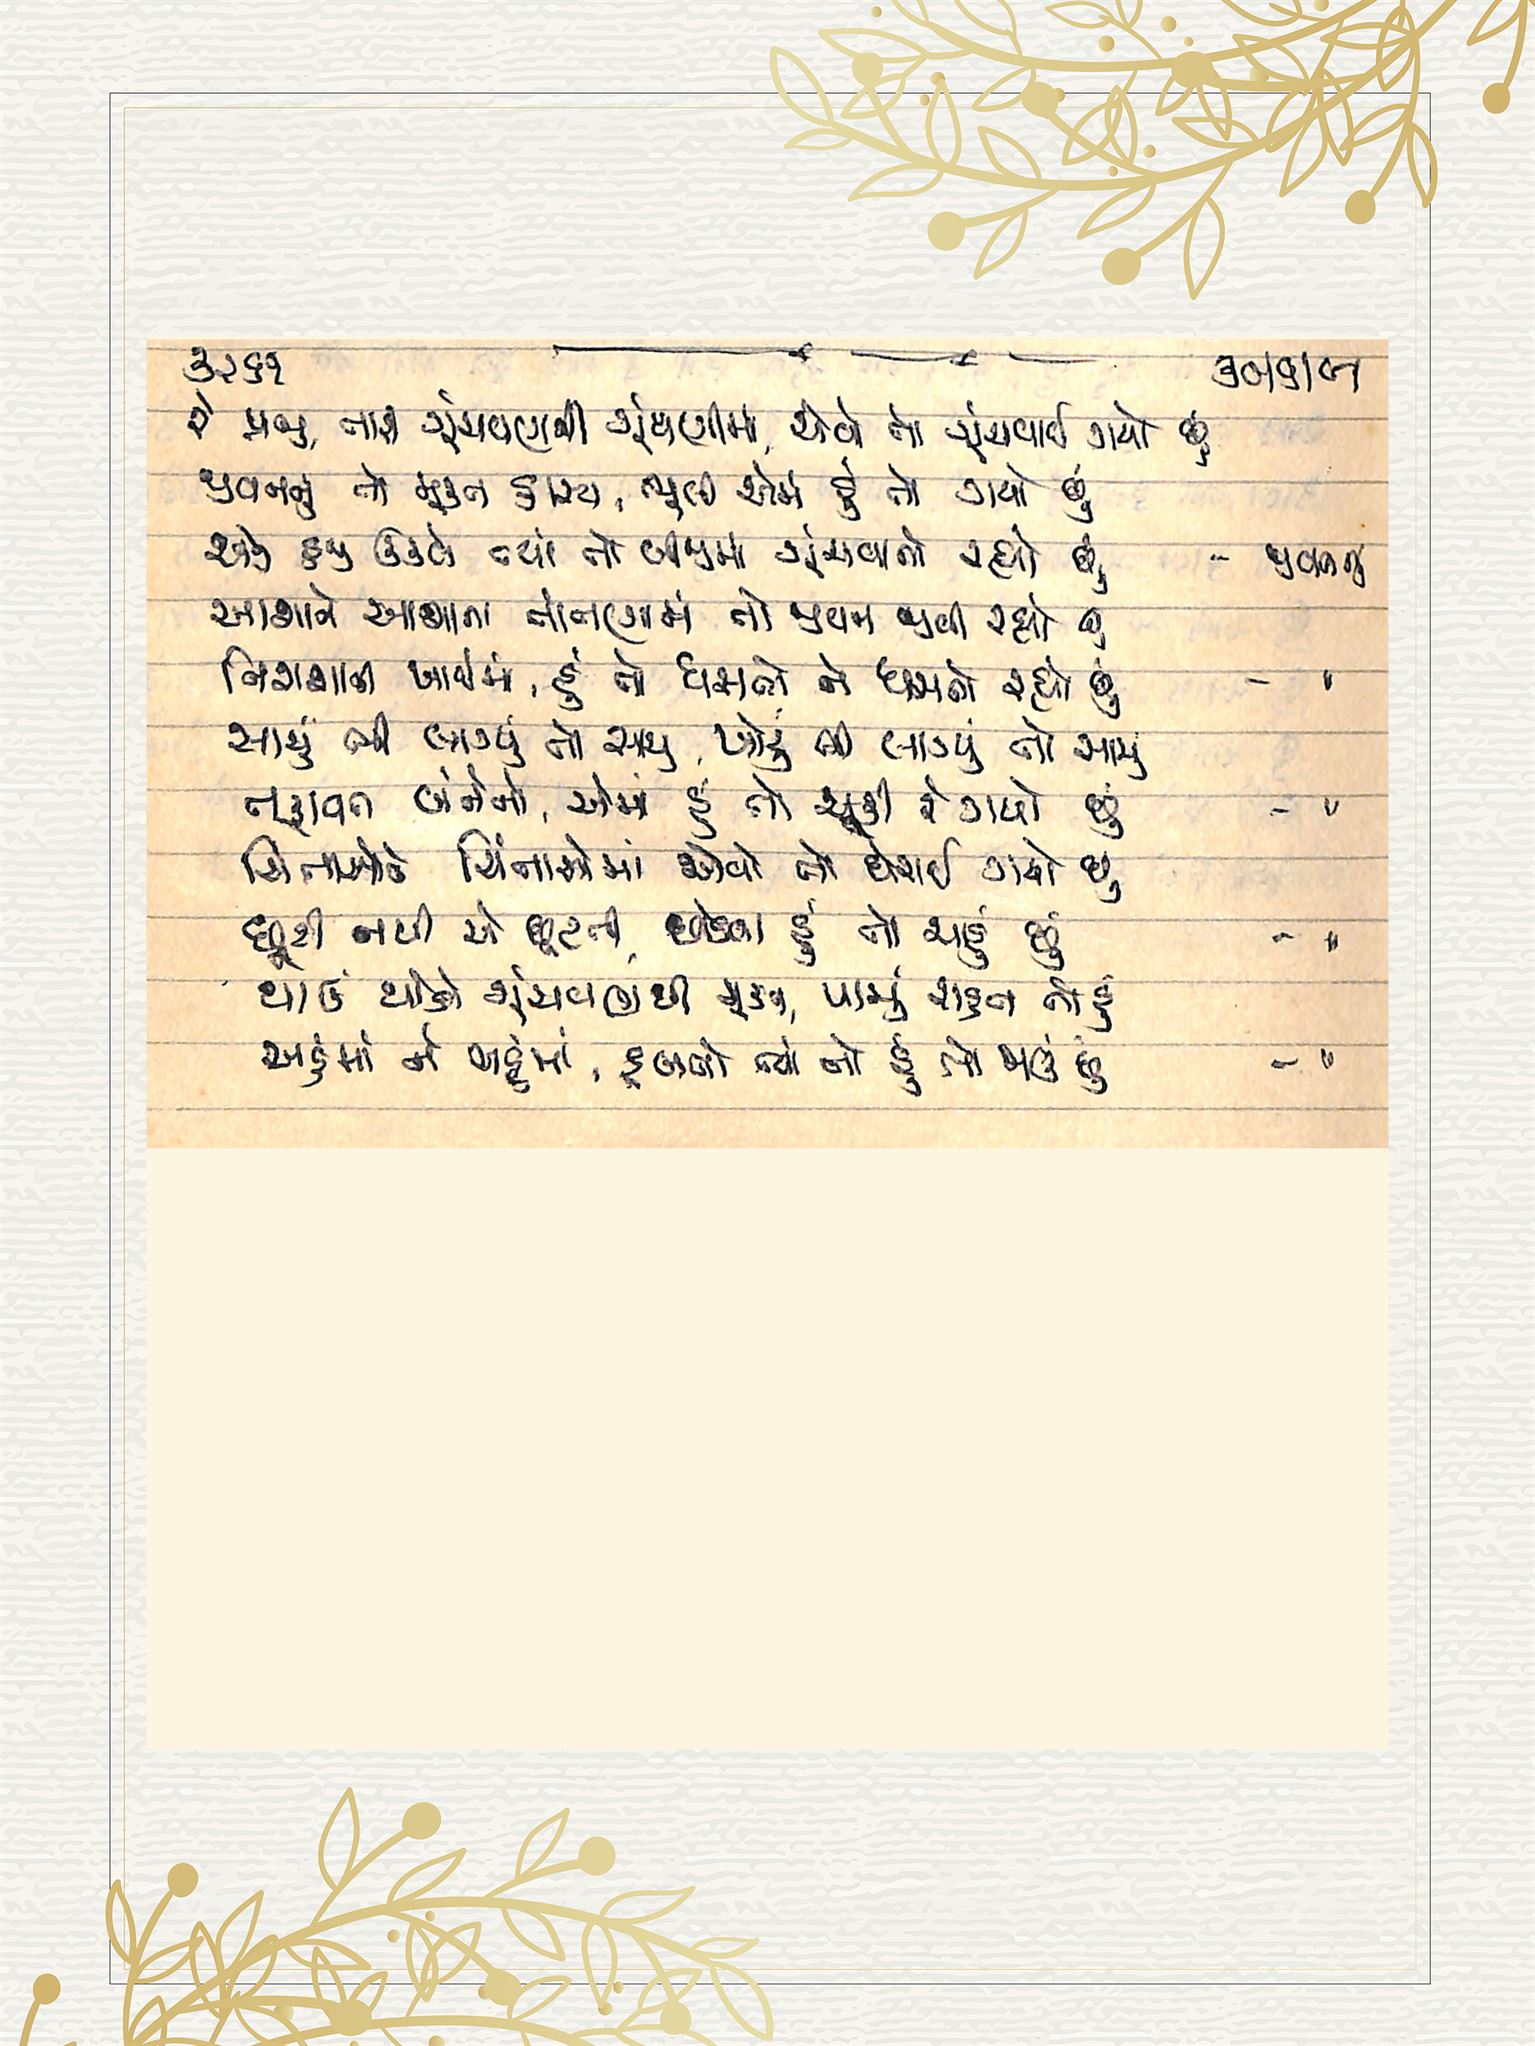 ૩૨૬૧ ૩૦/૬/૯૧
રે પ્રભુ, તારી ગૂંચવણની ગૂંથણીમાં, એવો તો ગૂંચવાઈ ગયો છું
જીવનનું તો મૂકત હાસ્ય, ભૂલી એમાં હું તો ગયો છું
એક હજી ઉકલે ત્યાં તો બીજીમાં ગૂંચવાતો રહ્યો છું - જીવનનું
આશાને આશાના તાંતણામાં તો જીવન જીવી રહ્યો છું
નિરાશાની ખાઈમાં, હું તો ધસતો ને ધસતો રહ્યો છું - "
સાચું ભી લાગ્યું તો સાચું, ખોટું ભી લાગ્યું તો સાચું
તફાવત બંનેનો, એમાં હું તો ચૂકી રે ગયો છું - "
ચિંતાઓને ચિંતાઓમાં એવો તો ઘેરાઈ ગયો છું
છૂટી નથી એ છૂટતી, છોડવા હું તો ચાહું છું - "
થાઉં થોડો ગૂંચવણથી મૂકત, પામું રાહત તો હું
અહંમાં ને અહંમાં, ડૂબતો ત્યાં તો હું તો જાઉં છું - "